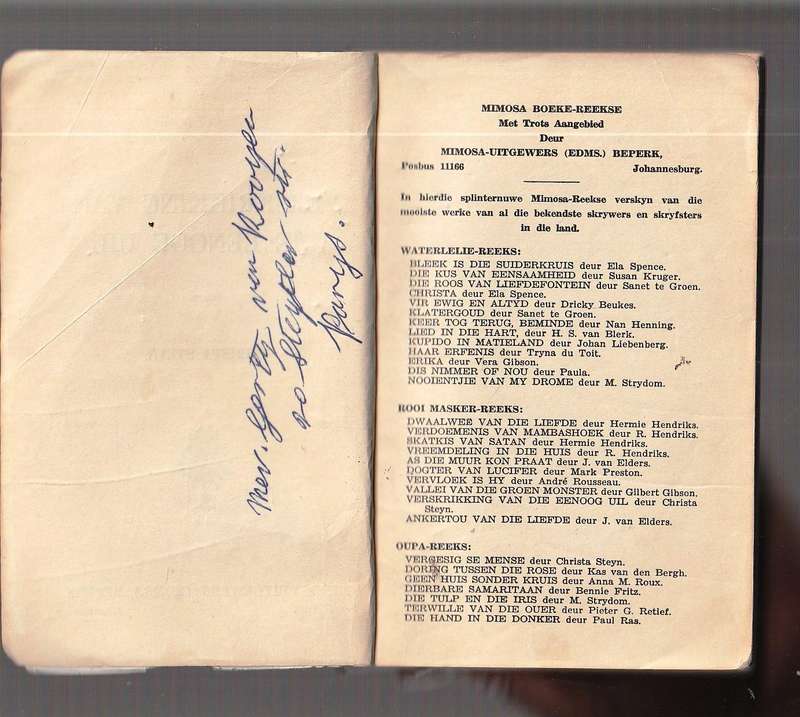 mev. Gerty van Rooyen
20 Steyler str.
Parys.
MIMOSA BOEKE-REEKSE
Met Trots Aangebied
Deur
MIMOSA-UITGEWERS (EDMS.) BEPERK,
Posbus 11166 Johannesburg.
In hierdie splinternuwe Mimosa-Reekse verskyn van die
mooiste werke van al die bekendste skrywers en skryfsters
in die land.
WATERLELIE-REEKS:
BLEEK IS DIE SUIDERKRUIS deur Ela Spence.
DIE KUS VAN EENSAAMHEID deur Susan Kruger.
DIE ROOS VAN LIEFDEFONTEIN deur Sanet te Groen.
CHRISTA deur Ela Spence.
VIR EWIG EN ALTYD deur Dricky Beukes.
KLATERGOUD deur Sanet te Groen.
KEER TOG TERUG, BEMINDE deur Nan Henning.
LIED IN DIE HART, deur H. S. van Blerk.
KUPIDO IN MATIELAND deur Johan Liebenberg.
HAAR ERFENIS deur Tryna du Toit.
ERIKA deur Vera Gibson.
DIS NIMMER OF NOU deur Paula.
NOOIENTJIE VAN MY DROME deur M. Strydom.
ROOI MASKER-REEKS:
DWAALWEË VAN DIE LIEFDE deur Hermie Hendriks.
VERDOEMENIS VAN MAMBASHOEK deur R. Hendriks.
SKATKIS VAN SATAN deur Hermie Hendriks.
VREEMDELING IN DIE HUIS deur R. Hendriks.
AS DIE MUUR KON PRAAT deur J. van Elders.
DOGTER VAN LUCIFER deur Mark Preston.
VERVLOEK IS HY deur André Rousseau.
VALLEI VAN DIE GROEN MONSTER deur Gilbert Gibson.
VERSKRIKKING VAN DIE EENOOG UIL deur Christa
Steyn.
ANKERTOU VAN DIE LIEFDE deur J. van Elders.
OUPA-REEKS:
VERGESIG SE MENSE deur Christa Steyn.
DORING TUSSEN DIE ROSE deur Kas van den Bergh.
GEEN HUIS SONDER KRUIS deur Anna M. Roux.
DIERBARE SAMARITAAN deur Bennie Fritz.
DIE TULP EN DIE IRIS deur M. Strydom.
TERWILLE VAN DIE OUER deur Pieter G. Retief.
DIE HAND IN DIE DONKER deur Paul Ras.